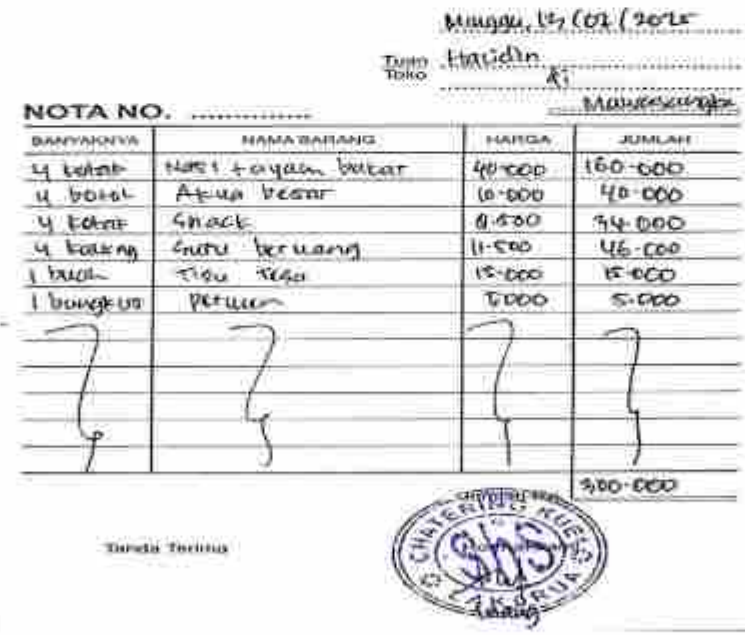 Minggu, 13/07/2025
Tuan Haridin
Toko
di
NOTA NO. ..............
BANYAKNYA NAMA BARANG HARGA JUMLAH
4 kotak Nasi + ayam bakar 40.000 160.000
4 botol Akua besar 10.000 40.000
4 kotak Snack 8.500 34.000
4 kaleng Susu beruang 11.500 46.000
1 buah Tisu 15.000 15.000
1 bungkus permen 5.000 5.000
300.000
Tanda Terima
CHATERING KUE